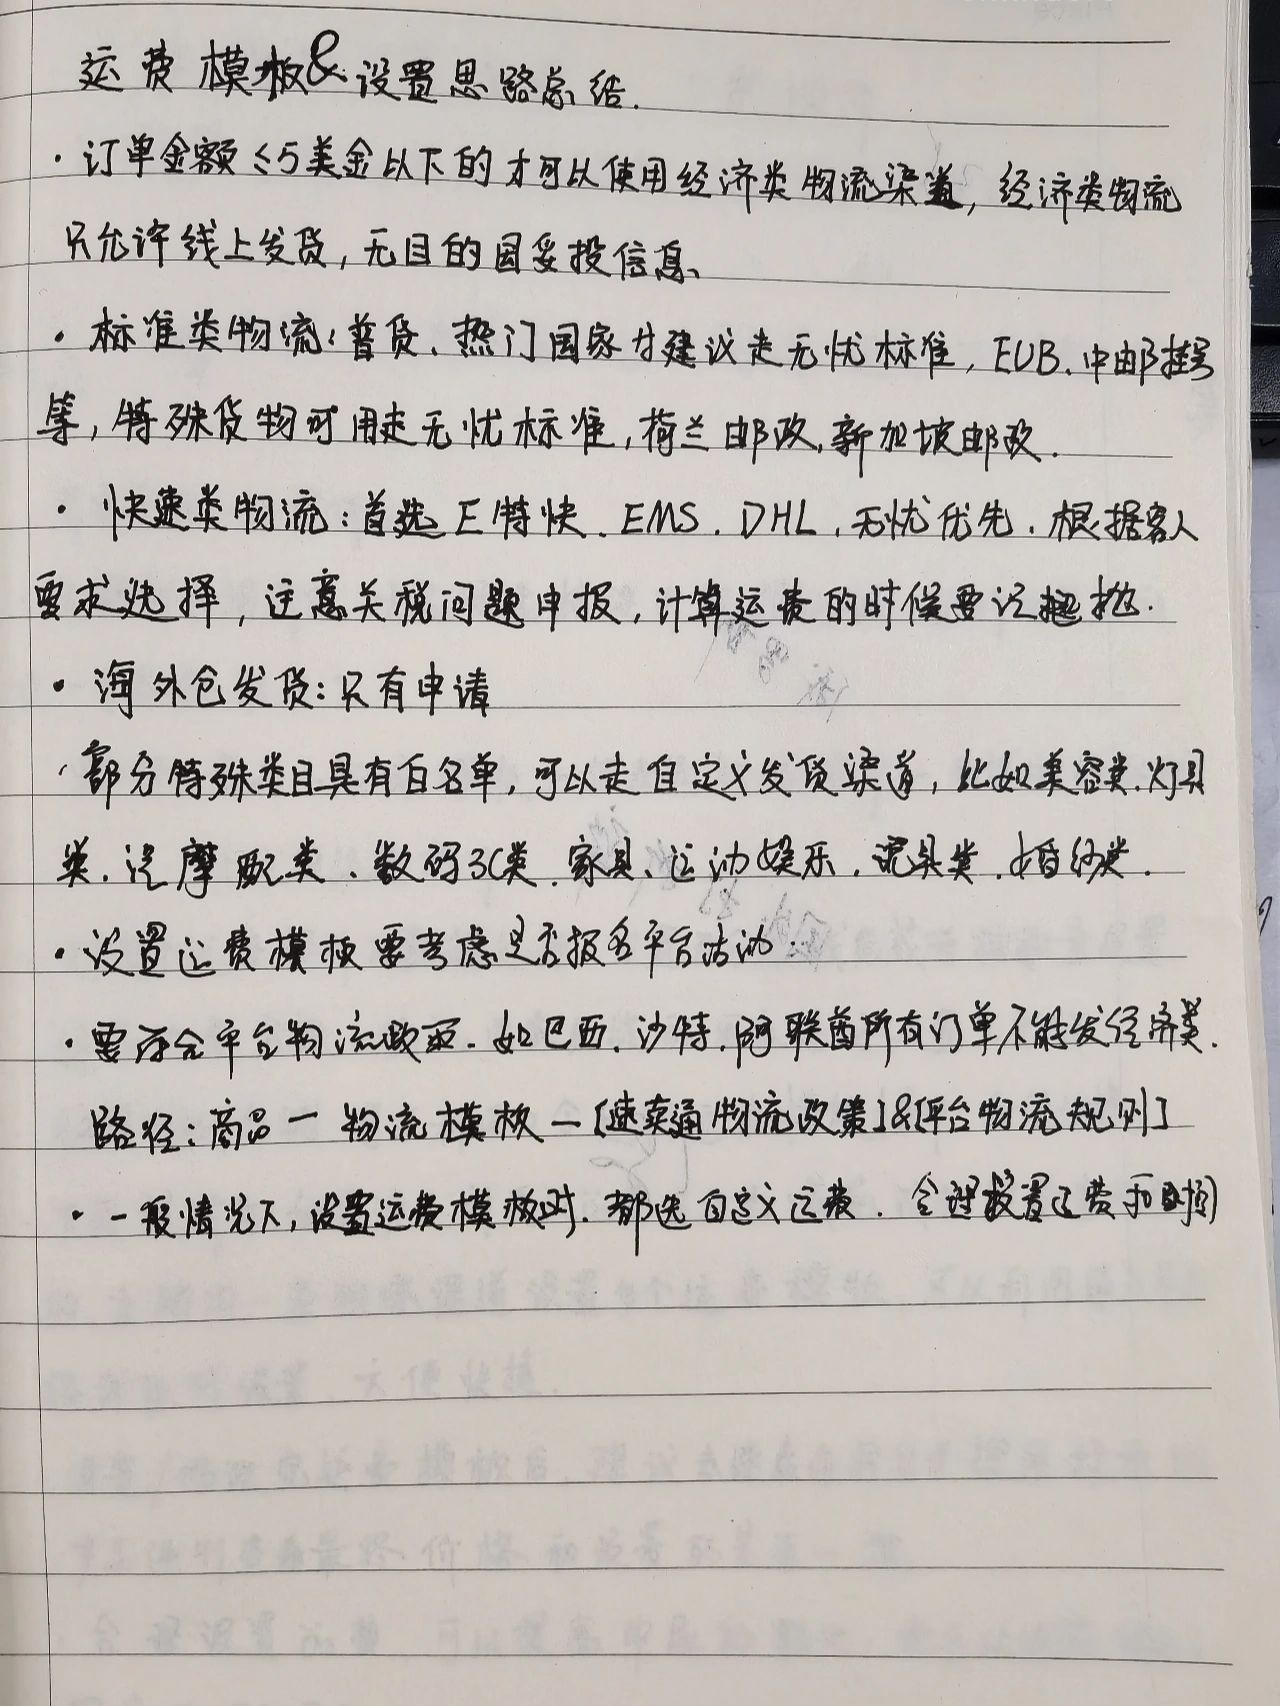 运费模板&设置思路总结.
·订单金额≤5美金以下的才可以使用经济类物流渠道,经济类物流
只允许线上发货,无目的国妥投信息、
·标准类物流:普货、热门国家才建议走无忧标准,EUB、中邮挂号
等,特殊货物可用走无忧标准,荷兰邮政,新加坡邮政.
·快速类物流:首选E特快、EMS、DHL,无忧优先.根据客人
要求选择,注意关税问题申报,计算运费的时候要记抛.
·海外仓发货:只有申请
·部分特殊类目具有白名单,可以走自定义发货渠道,比如美容类、灯具
类、汽摩配类、数码3C类、家具、运动娱乐、玩具类、婚纱类.
·设置运费模板要考虑是否报名平台活动.
·要符合平台物流政策.如巴西、沙特、阿联酋所有订单不能发经济类.
路径:商品一物流模板—[速卖通物流政策]&[平台物流规则]
·一般情况下,设置运费模板时.都选自定义运费.合理设置运费和时间